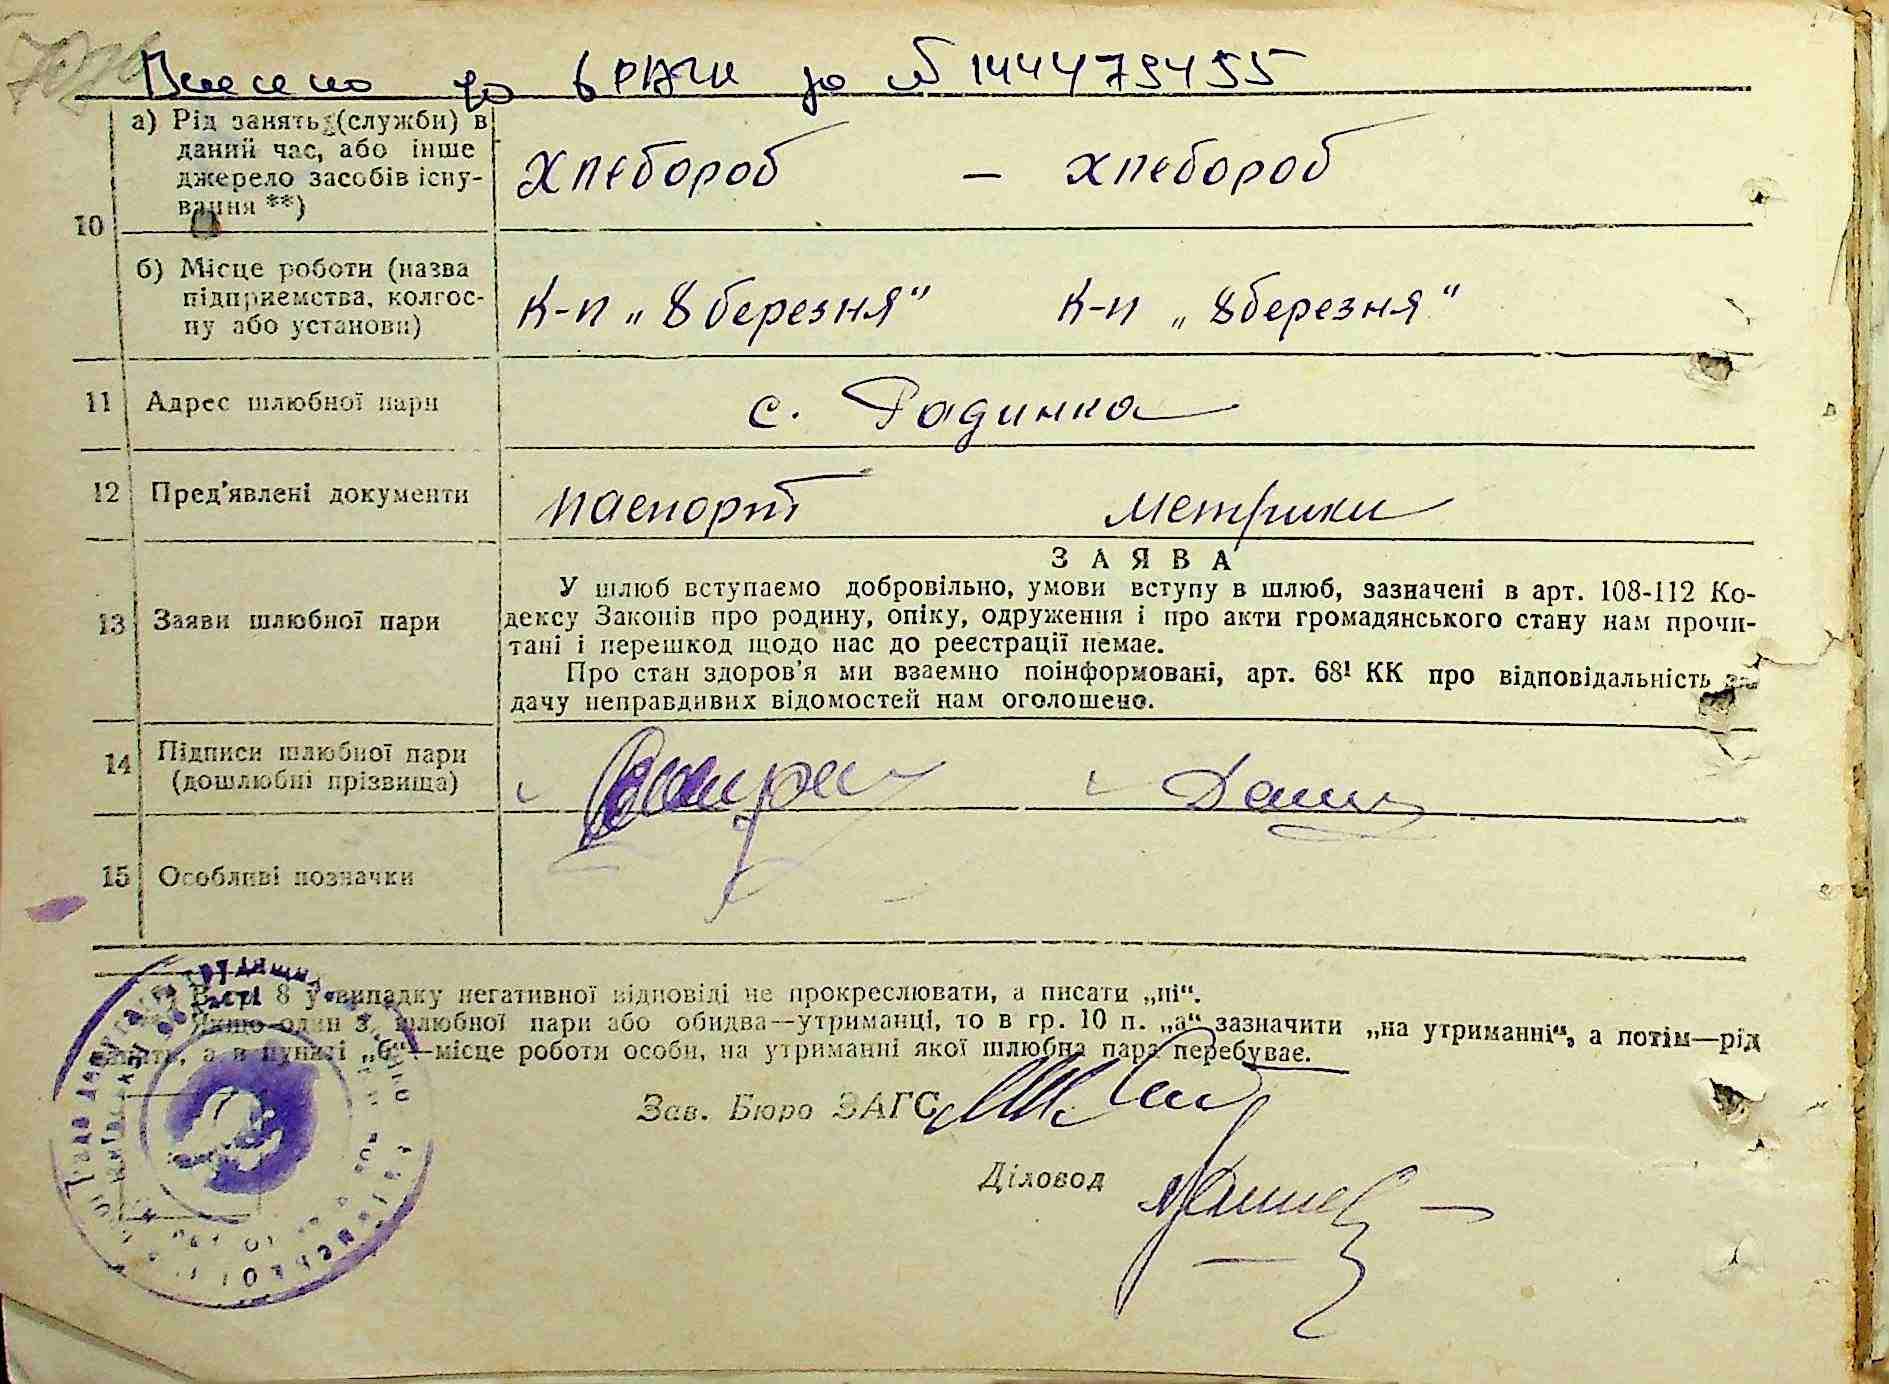 Внесено до ДРАЦС за № 1444479455
10
а) Рід занять (служби) в
даний час, або інше
джерело засобів існу-
вання **)
хлебороб – хлебороб
б) Місце роботи (назва
підприємства, колгос-
пу або установи)
К-п „8 березня“ К-п „8 березня“
11 Адрес шлюбної пари
с. Радинка
12 Пред'явлені документи
паспорт метрики
13 Заяви шлюбної пари
ЗАЯВА
У шлюб вступаємо добровільно, умови вступу в шлюб, зазначені в арт. 108-112 Ко-
дексу Законів про родину, опіку, одруження і про акти громадянського стану нам прочи-
тані і перешкод щодо нас до реєстрації немає.
Про стан здоров'я ми взаємно поінформовані, арт. 68¹ КК про відповідальність за
дачу неправдивих відомостей нам оголошено.
14 Підписи шлюбної пари
(дошлюбні прізвища)
15 Особливі позначки
8 у випадку негативної відповіді не прокреслювати, а писати „ні“.
Якщо один з шлюбної пари або обидва—утриманці, то в гр. 10 п. „а“ зазначити „на утриманні“, а потім—рід
занять, а в пункті „б“—місце роботи особи, на утриманні якої шлюбна пара перебуває.
Зав. Бюро ЗАГС
Діловод